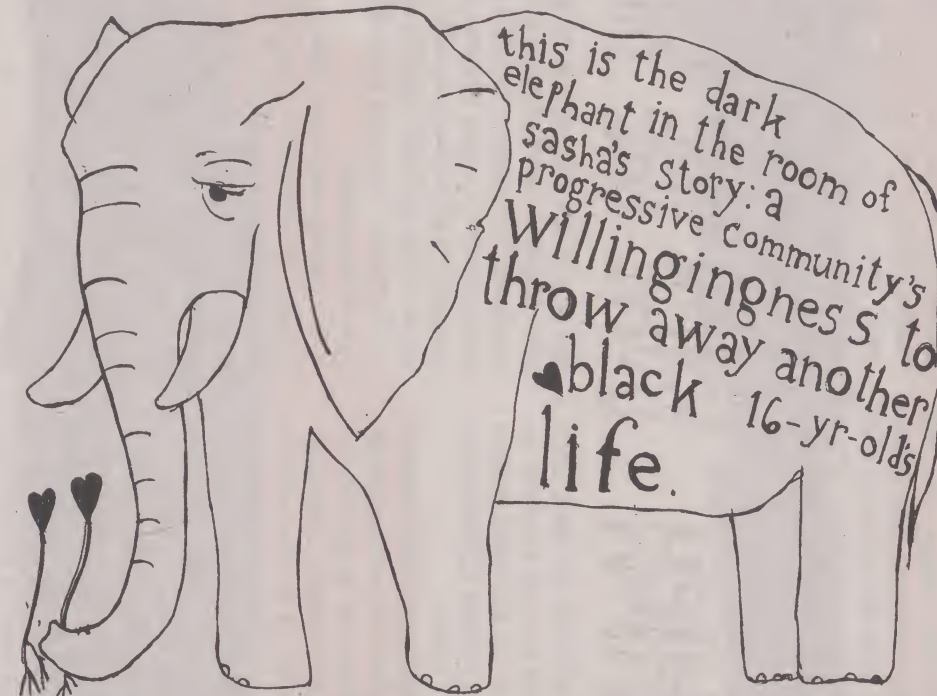 this is the dark
elephant in the room of
sasha's story: a
progressive community's
willingingness to
throw away another
black 16-yr-old's
life.